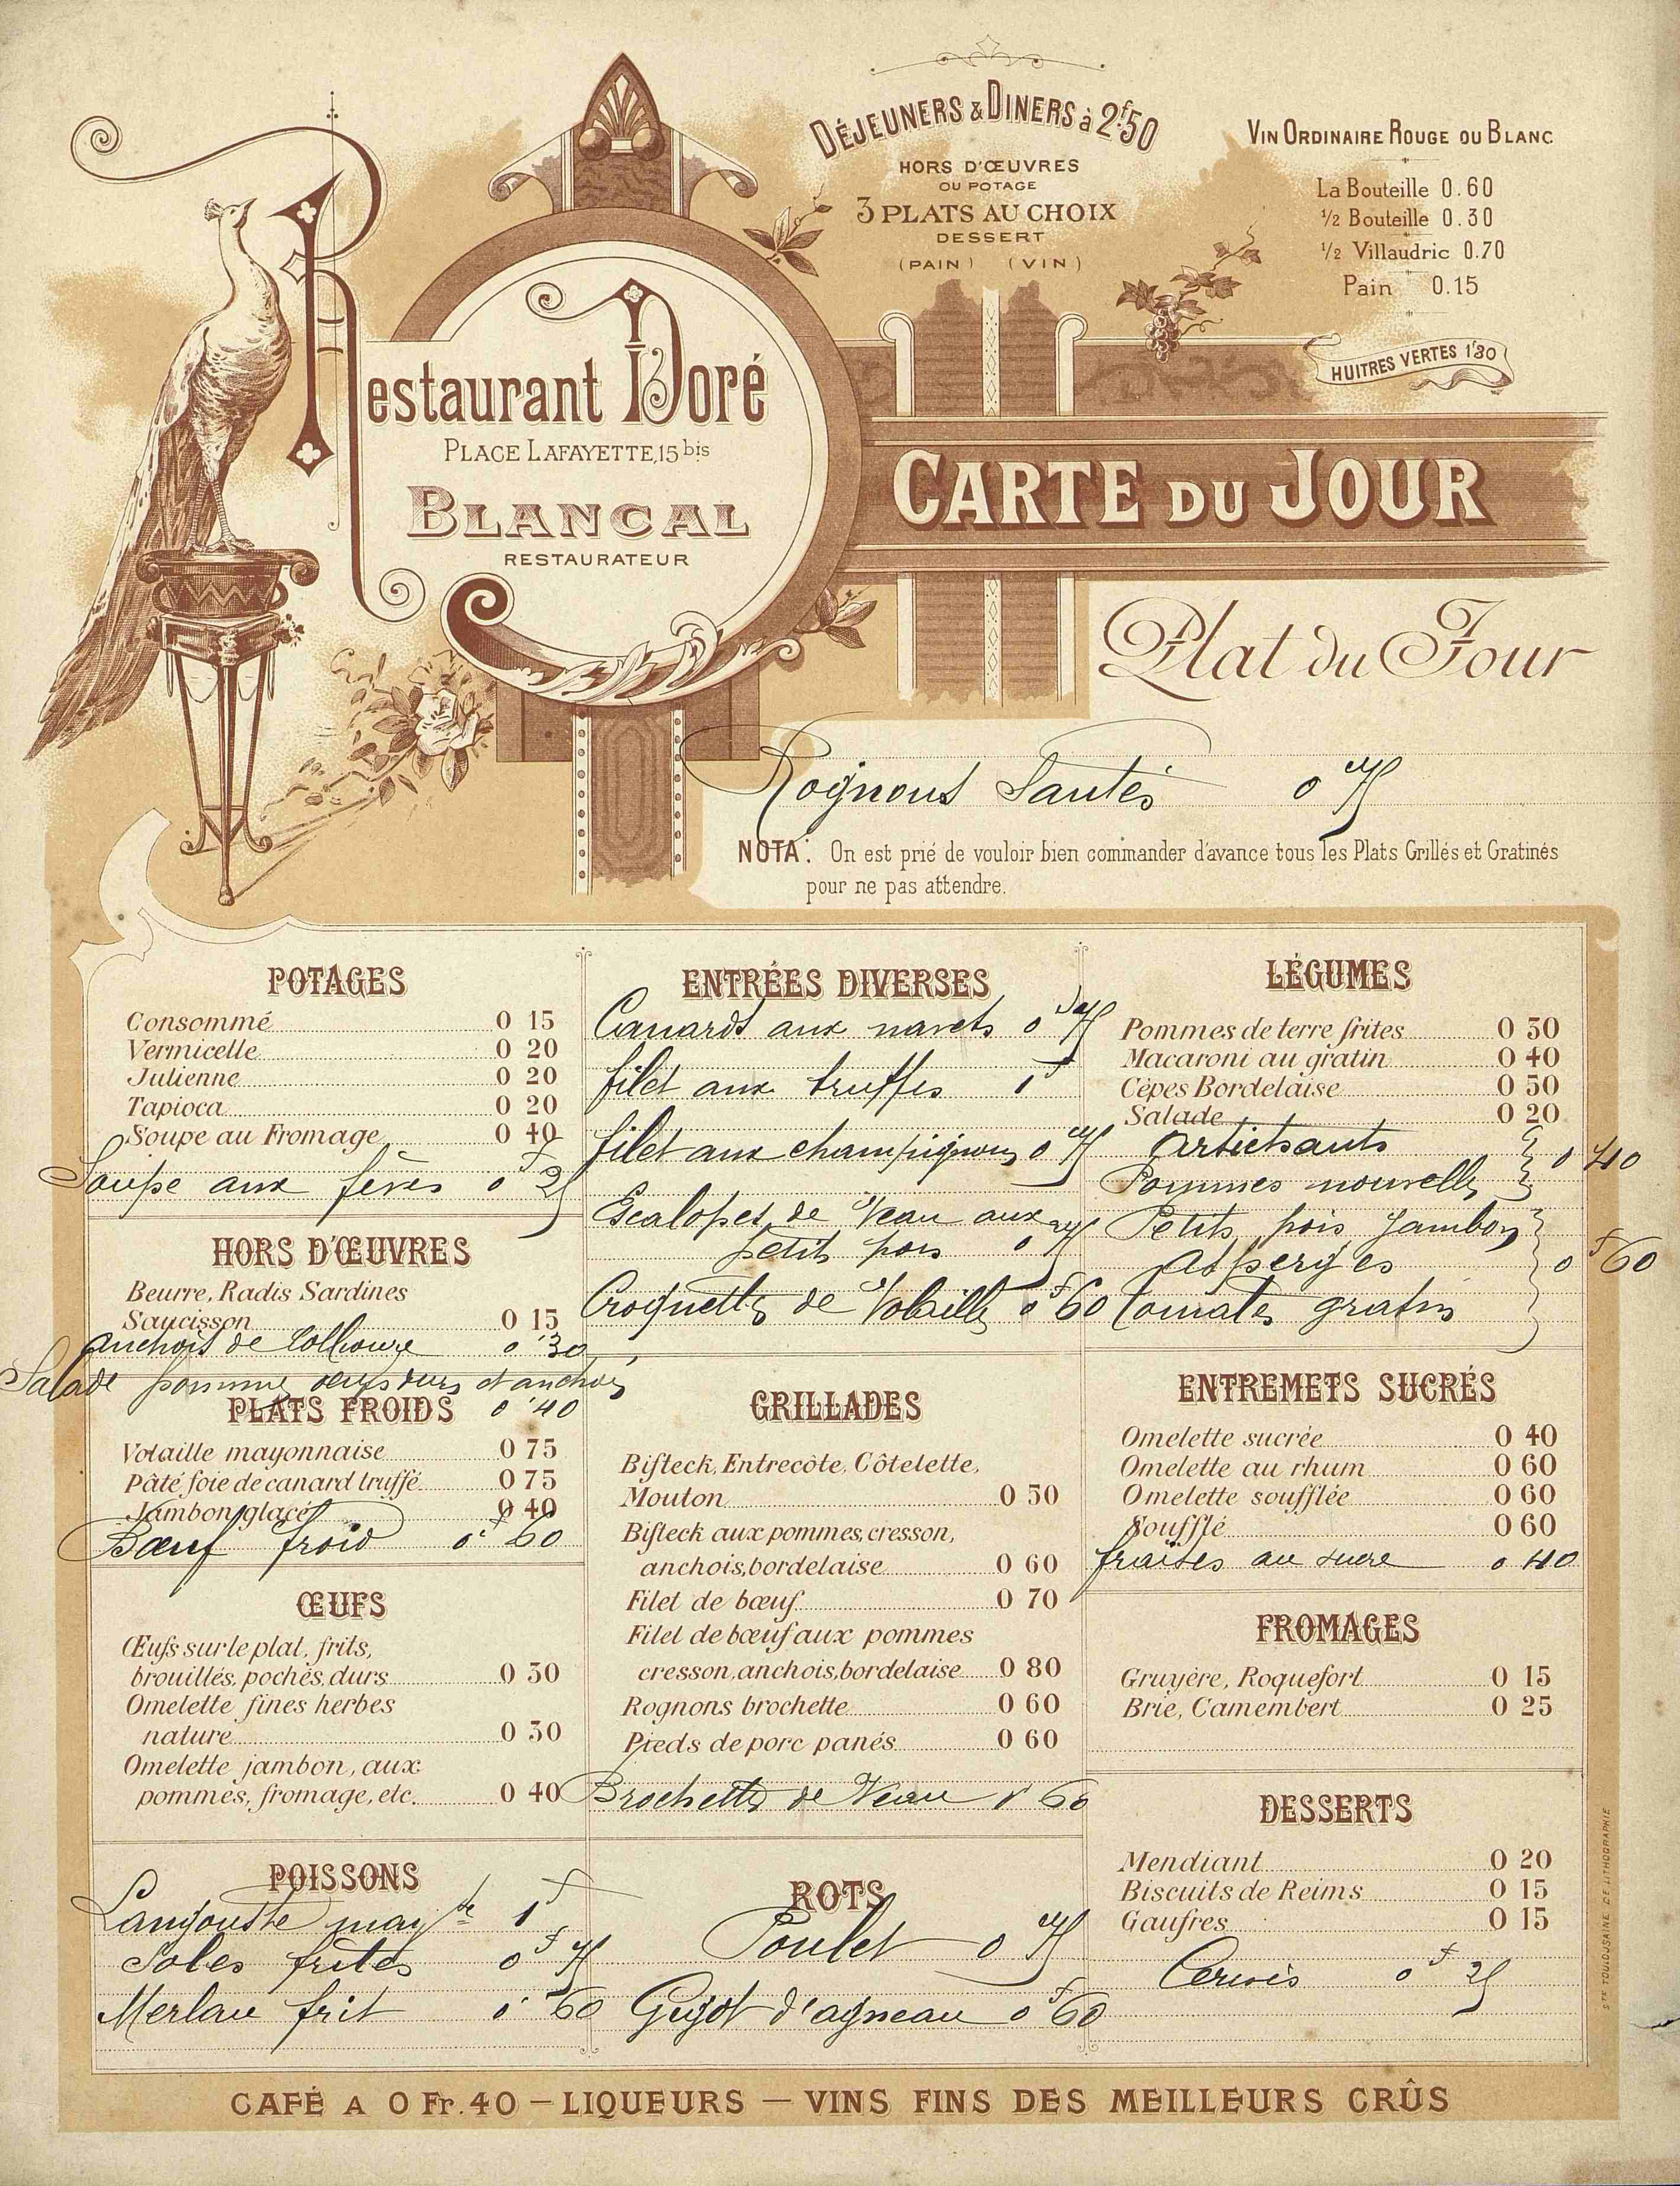 DÉJEUNERS & DINERS à 2f50
HORS D'ŒUVRES
OU POTAGE
3 PLATS AU CHOIX
DESSERT
(PAIN) (VIN)
VIN ORDINAIRE ROUGE OU BLANC
La Bouteille 0.60
½ Bouteille 0.30
½ Villaudric 0.70
Pain 0.15
HUITRES VERTES 1f30
Restaurant Doré
PLACE LAFAYETTE, 15 bis
BLANCAL
RESTAURATEUR
CARTE DU JOUR
Plat du Jour
Rognons Sautés 0 75
NOTA: On est prié de vouloir bien commander d'avance tous les Plats Grillés et Gratinés
pour ne pas attendre.
POTAGES
Consommé 0 15
Vermicelle 0 20
Julienne 0 20
Tapioca 0 20
Soupe au Fromage 0 40
Soupe aux fèves 0f 25
HORS D'ŒUVRES
Beurre, Radis Sardines
Saucisson 0 15
Anchois de Collioure 0f 30
Salade pomme, œufs durs et anchois
0f 40
PLATS FROIDS
Volaille mayonnaise 0 75
Pâté foie de canard truffé 0 75
Jambon glacé 0 40
Bœuf froid 0f 60
ŒUFS
Œufs sur le plat, frits,
brouillés, pochés, durs 0 30
Omelette fines herbes
nature 0 30
Omelette jambon, aux
pommes, fromage, etc. 0 40
POISSONS
Langouste may se 1f
Soles frites 0f 75
Merlan frit 0f 60
ENTRÉES DIVERSES
Canards aux navets 0f 75
filet aux truffes 1f
filet aux champignons 0 75
Escalopes de Veau aux
petits pois 0 75
Croquettes de Volaille 0f 60
GRILLADES
Bifteck, Entrecôte, Côtelette,
Mouton 0 50
Bifteck aux pommes, cresson,
anchois, bordelaise 0 60
Filet de bœuf 0 70
Filet de bœuf aux pommes
cresson, anchois, bordelaise 0 80
Rognons brochette 0 60
Pieds de porc panés 0 60
Brochettes de Veau 0f 60
ROTS
Poulet 0 75
Gigot d'agneau 0f 60
LÉGUMES
Pommes de terre frites 0 30
Macaroni au gratin 0 40
Cèpes Bordelaise 0 50
Salade 0 20
Artichauts
Pommes nouvelles 0f 40
Petits pois Jambon
Asperges 0f 60
Tomates gratin
ENTREMETS SUCRÉS
Omelette sucrée 0 40
Omelette au rhum 0 60
Omelette soufflée 0 60
Soufflé 0 60
fraises au sucre 0 40
FROMAGES
Gruyère, Roquefort 0 15
Brie, Camembert 0 25
DESSERTS
Mendiant 0 20
Biscuits de Reims 0 15
Gaufres 0 15
Cerises 0f 25
STÉ TOULOUSAINE DE LITHOGRAPHIE
CAFÉ A 0 Fr. 40 – LIQUEURS – VINS FINS DES MEILLEURS CRÛS